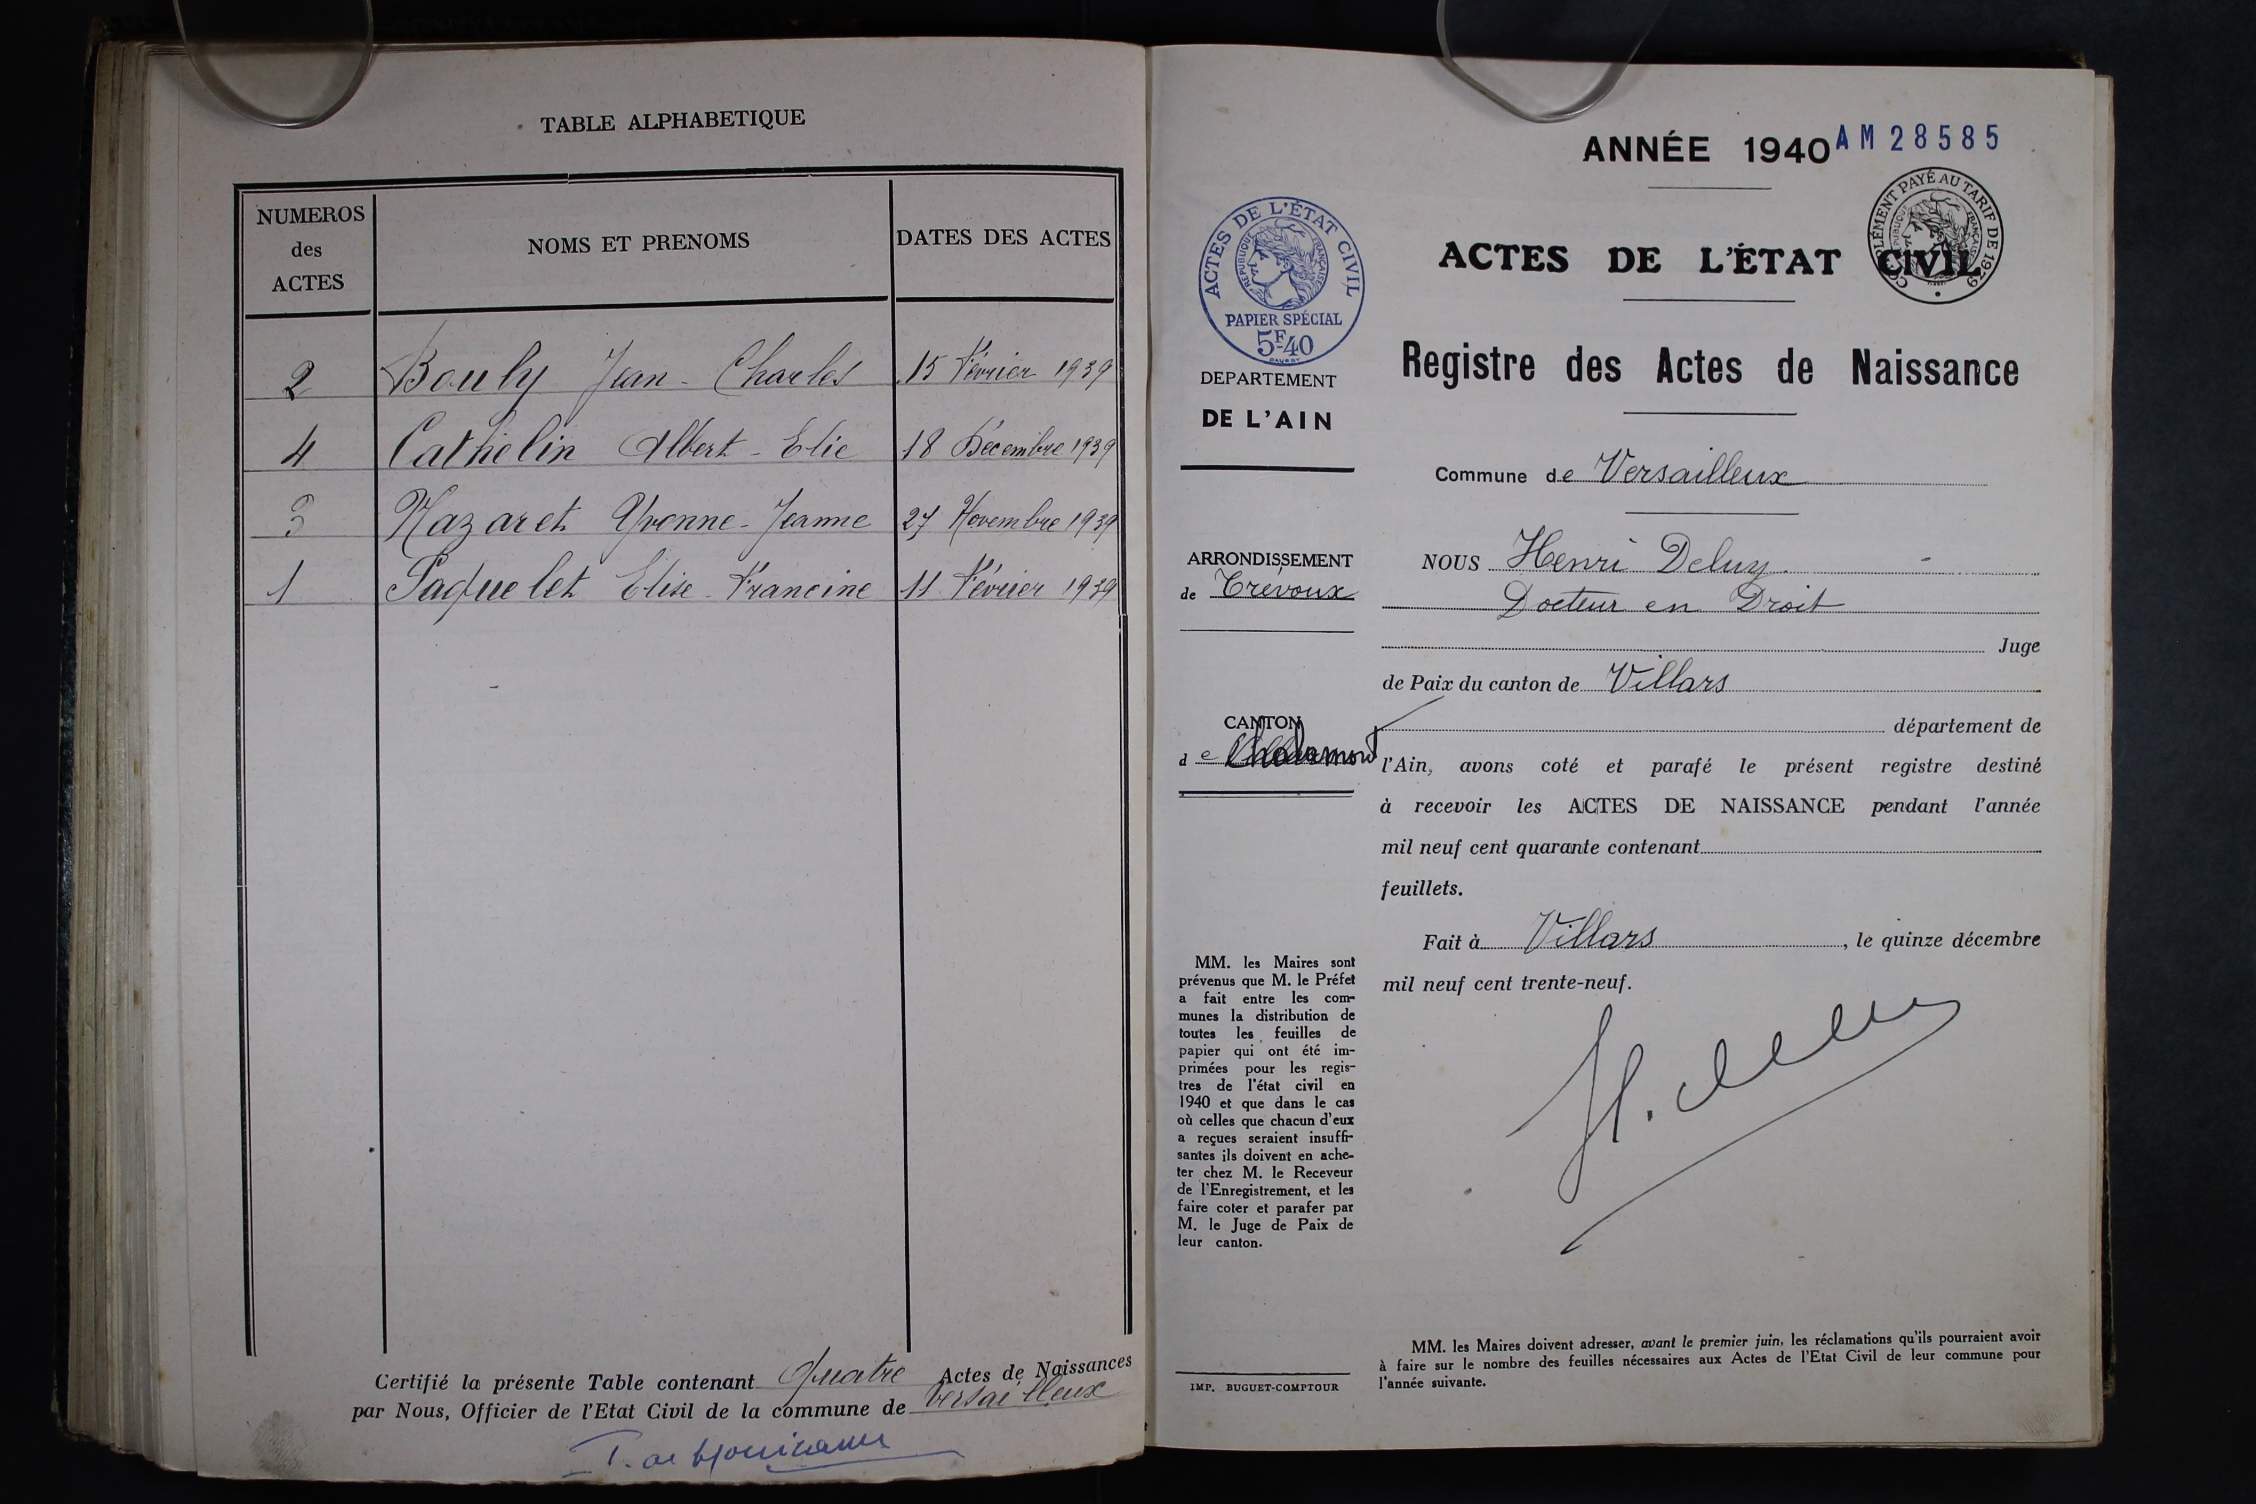 TABLE ALPHABETIQUE
NUMEROS
des
ACTES
NOMS ET PRENOMS
DATES DES ACTES
2 Bouly Jean-Charles 15 Février 1939
4 Cathelin Albert-Elie 18 Décembre 1939
3 Nazaret Yvonne-Jeanne 27 Novembre 1939
1 Paquelet Elise-Francine 11 Février 1939
Certifié la présente Table contenant Quatre Actes de Naissances
par Nous, Officier de l'Etat Civil de la commune de Versailleux
ANNÉE 1940
AM 28585
COMPLÉMENT PAYÉ AU TARIF DE 1979
RÉPUBLIQUE FRANÇAISE
ACTES DE L'ÉTAT CIVIL
RÉPUBLIQUE FRANÇAISE
PAPIER SPÉCIAL
5F40
ACTES DE L'ÉTAT CIVIL
Registre des Actes de Naissance
DEPARTEMENT
DE L'AIN
Commune de Versailleux
ARRONDISSEMENT
de Trévoux
CANTON
de Chalamont
NOUS Henri Deluy
Docteur en Droit
Juge
de Paix du canton de Villars
département de
l'Ain, avons coté et parafé le présent registre destiné
à recevoir les ACTES DE NAISSANCE pendant l'année
mil neuf cent quarante contenant
feuillets.
Fait à Villars, le quinze décembre
mil neuf cent trente-neuf.
MM. les Maires sont
prévenus que M. le Préfet
a fait entre les com-
munes la distribution de
toutes les feuilles de
papier qui ont été im-
primées pour les regis-
tres de l'état civil en
1940 et que dans le cas
où celles que chacun d'eux
a reçues seraient insuffi-
santes ils doivent en ache-
ter chez M. le Receveur
de l'Enregistrement, et les
faire coter et parafer par
M. le Juge de Paix de
leur canton.
IMP. BUGUET-COMPTOUR
MM. les Maires doivent adresser, avant le premier juin, les réclamations qu'ils pourraient avoir
à faire sur le nombre des feuilles nécessaires aux Actes de l'Etat Civil de leur commune pour
l'année suivante.